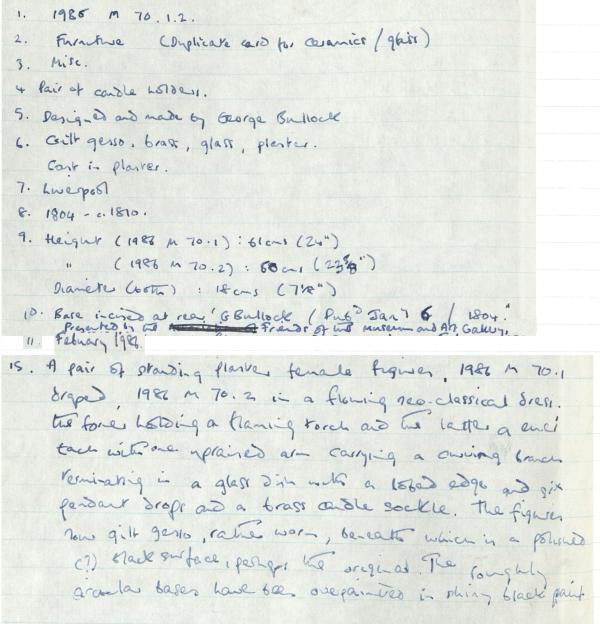 1. 1986 M 70.1.2.
2. Furniture (Duplicate card for ceramics / glass)
3. Misc.
4 Pair of candle holders.
5. Designed and made by George Bullock
6. Gilt gesso, brass, glass, plaster.
Cast in plaster.
7. Liverpool
8. 1804 - c.1810.
9. Height (1986 M 70.1) : 61cms (24")
" (1986 M 70.2) : 60cms
Diameter (both) : 18cms
10. Base incised at rear 'G Bullock / Pubd Jany 6 / 1804."
Presented by the Friends of the museum and Art Gallery,
11 February 1986.
15. A pair of standing plaster female figures, 1986 M 70.1
draped, 1986 M 70.2 in a flowing neo-classical dress.
the former holding a flaming torch and the latter a
Each with one upraised arm carrying a curving branch
terminating in a glass dish with a lobed edge and six
pendant drops and a brass candle sockle. The figures
now gilt gesso, rather worn, beneath which is a polished
(?) black surface, perhaps the original. The roughly
circular bases have been overpainted in shiny black paint